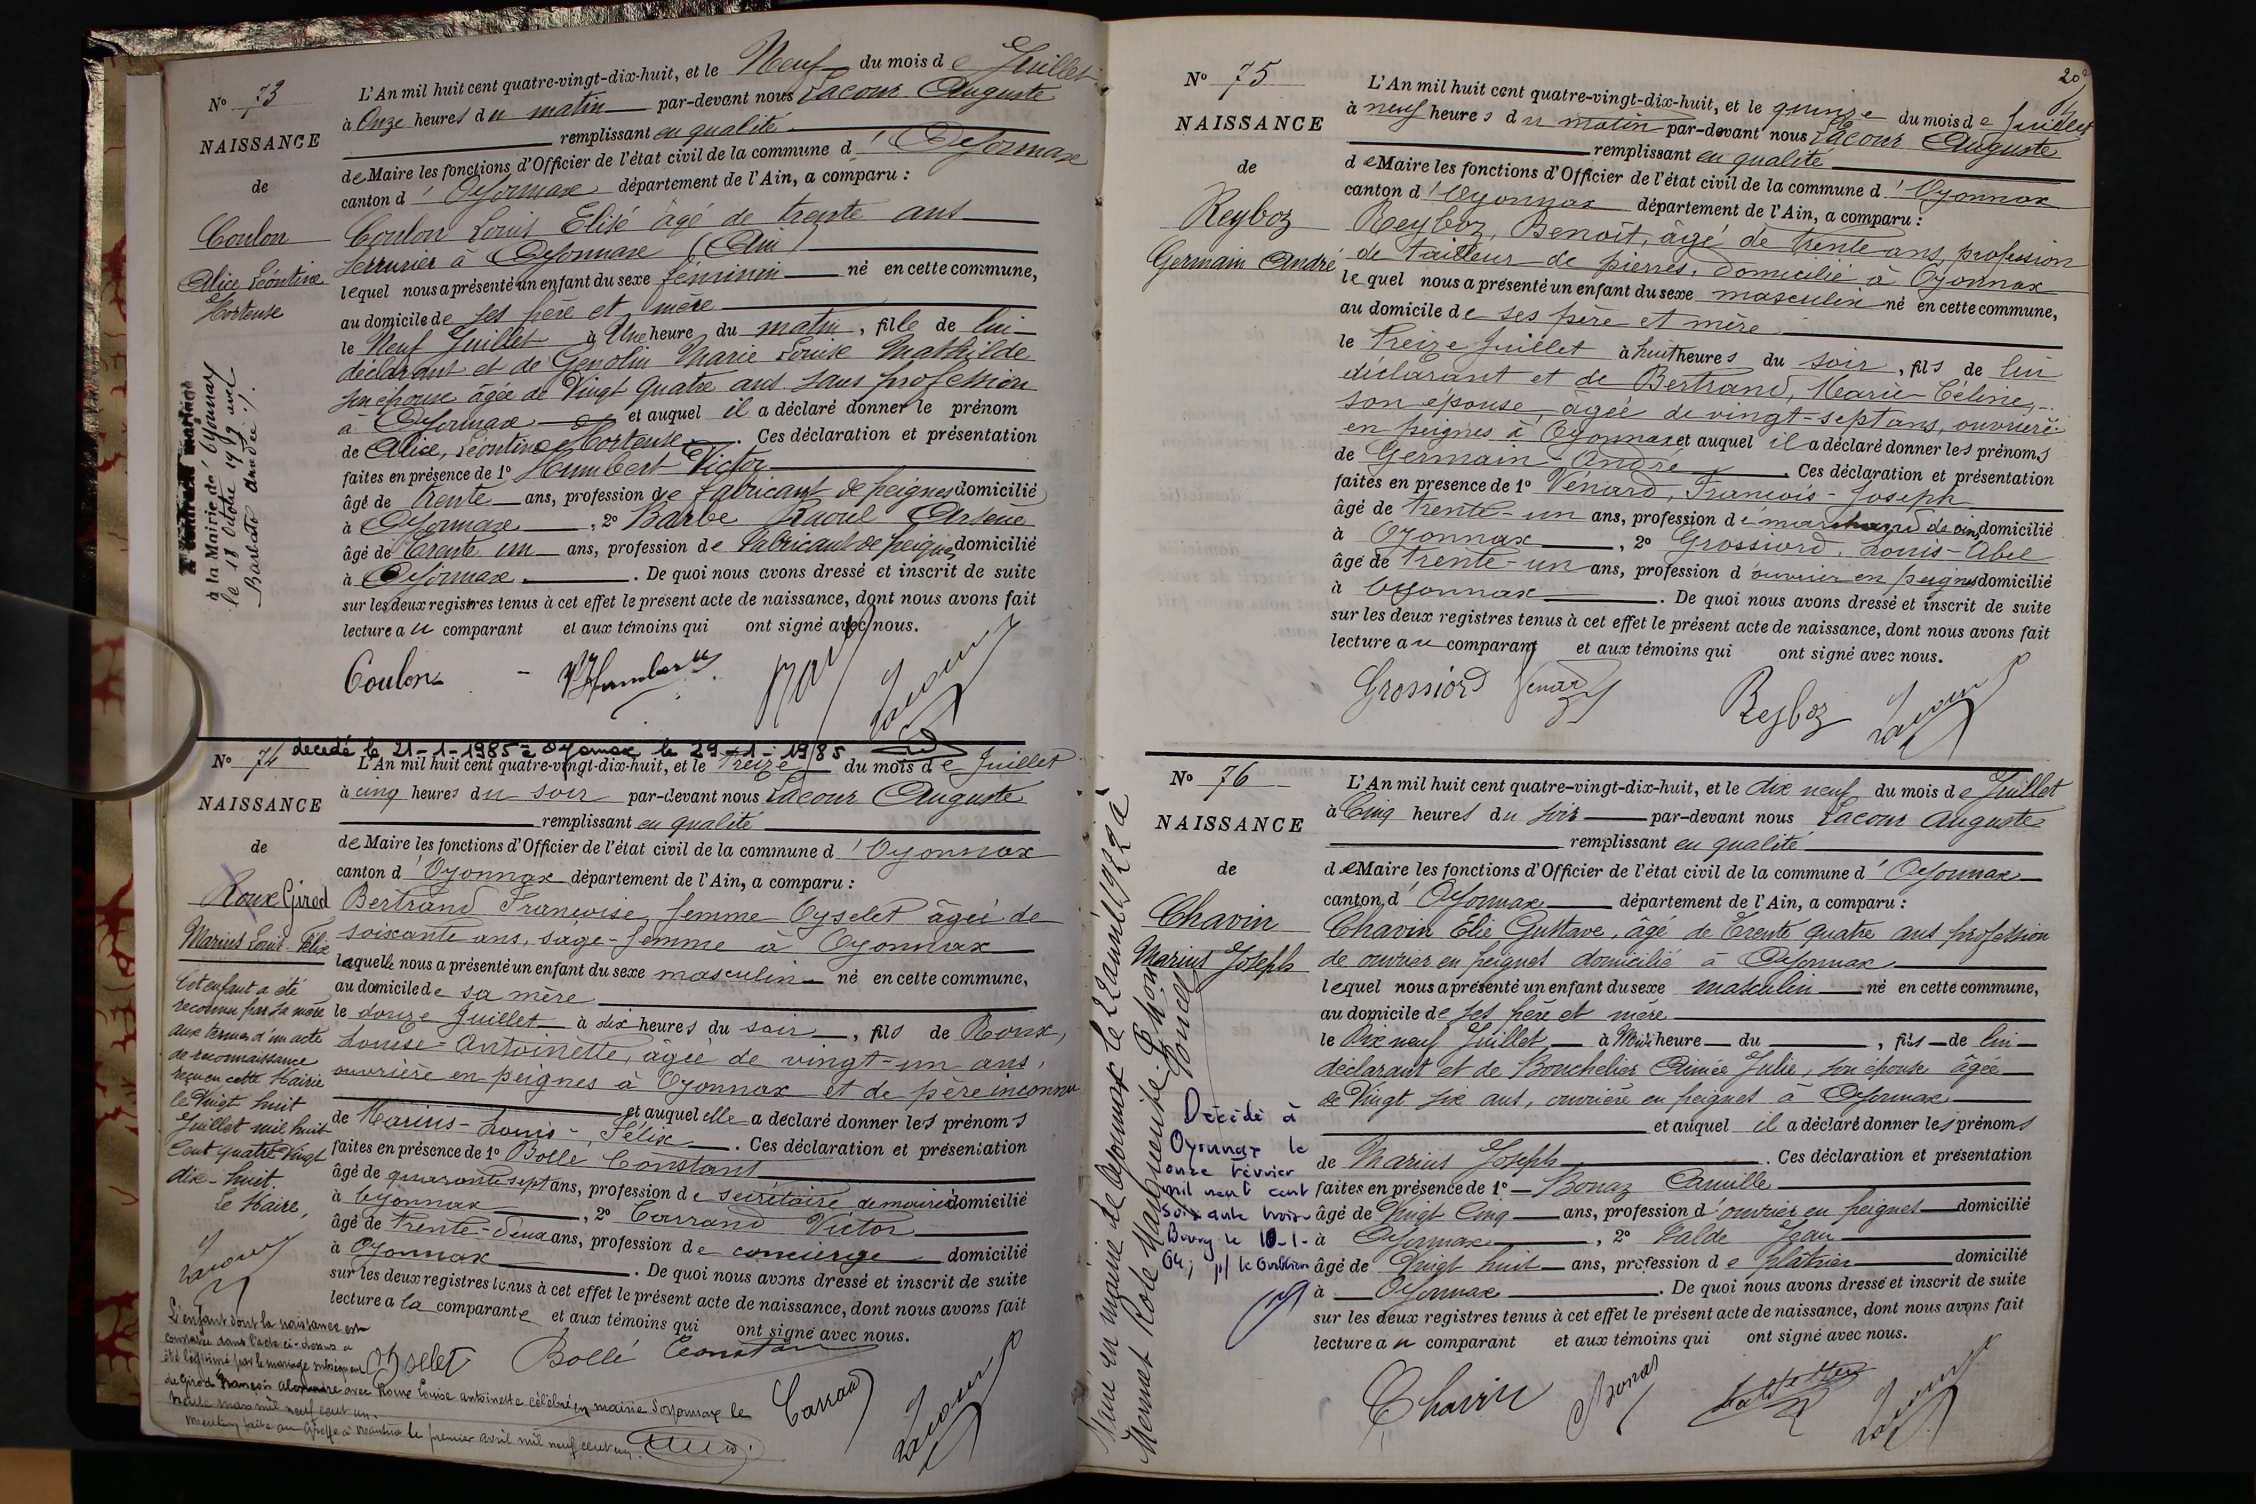 No 73
NAISSANCE
de
Coulon
Alice Léontine
Hortense
à la Mairie de Oyonnax
le 18 Octobre 1919 avec
L'An mil huit cent quatre-vingt-dix-huit, et le Neuf du mois de Juillet
à Onze heures du matin par-devant nous Lacour Auguste
remplissant en qualité
de Maire les fonctions d'Officier de l'état civil de la commune d'Oyonnax
canton d'Oyonnax département de l'Ain, a comparu :
Coulon Louis Elisé âgé de trente ans
serrurier à Oyonnax (Ain)
lequel nous a présenté un enfant du sexe féminin né en cette commune,
au domicile de ses père et mère
le Neuf Juillet à Une heure du matin, fille de lui
déclarant et de Genolin Marie Louise Mathilde
son épouse âgée de Vingt quatre ans sans profession
à Oyonnax et auquel il a déclaré donner le prénom
de Alice, Léontine Hortense. Ces déclaration et présentation
faites en présence de 1o Humbert Victor
âgé de trente ans, profession de fabricant de peignes domicilié
à Oyonnax, 2o Barbe Raoul Arsène
âgé de Trente un ans, profession de fabricant de peignes domicilié
à Oyonnax. De quoi nous avons dressé et inscrit de suite
sur les deux registres tenus à cet effet le présent acte de naissance, dont nous avons fait
lecture au comparant et aux témoins qui ont signé avec nous.
Coulon V Humbert Lacour
décédé le 21-1-1985 à Oyonnax le 29-1-1985
No 74
NAISSANCE
de
Roux Girod
Marius Louis Félix
Cet enfant a été
reconnu par sa mère
aux termes d'un acte
de reconnaissance
reçu en cette Mairie
le Vingt huit
Juillet mil huit
Cent quatre Vingt
dix-huit.
Le Maire,
Lacour
L'An mil huit cent quatre-vingt-dix-huit, et le treize du mois de Juillet
à cinq heures du soir par-devant nous Lacour Auguste
remplissant en qualité
de Maire les fonctions d'Officier de l'état civil de la commune d'Oyonnax
canton d'Oyonnax département de l'Ain, a comparu :
Bertrand Françoise femme Oyselet âgée de
soixante ans, sage-femme à Oyonnax
laquelle nous a présenté un enfant du sexe masculin né en cette commune,
au domicile de sa mère
le douze Juillet à dix heures du soir, fils de Roux,
Louise-Antoinette, âgée de vingt-un ans,
ouvrière en peignes à Oyonnax et de père inconnu
et auquel elle a déclaré donner les prénoms
de Marius-Louis-Félix. Ces déclaration et présentation
faites en présence de 1o Bollé Constant
âgé de quarante sept ans, profession de secrétaire de mairie domicilié
à Oyonnax, 2o Carrand Victor
âgé de trente-deux ans, profession de concierge domicilié
à Oyonnax. De quoi nous avons dressé et inscrit de suite
sur les deux registres tenus à cet effet le présent acte de naissance, dont nous avons fait
lecture a la comparante et aux témoins qui ont signé avec nous.
Oyselet Bollé Constant Carrand Lacour
L'enfant dont la naissance est
constatée dans l'acte ci-dessus a
été légitimé par le mariage subséquent
de Girod François Alexandre avec Roux Louise Antoinette célébré en mairie d'Oyonnax le
trente mars mil neuf cent un.
Mention faite au Greffe à Nantua le premier avril mil neuf cent un.
20
No 75
NAISSANCE
de
Reyboz
Germain André
L'An mil huit cent quatre-vingt-dix-huit, et le quinze du mois de Juillet
à neuf heures du matin par-devant nous Lacour Auguste
remplissant en qualité
de Maire les fonctions d'Officier de l'état civil de la commune d'Oyonnax
canton d'Oyonnax département de l'Ain, a comparu :
Reyboz, Benoît, âgé de trente ans, profession
de tailleur de pierres, domicilié à Oyonnax
lequel nous a présenté un enfant du sexe masculin né en cette commune,
au domicile de ses père et mère
le treize Juillet à huit heures du soir, fils de lui
déclarant et de Bertrand, Marie-Céline,
son épouse, âgée de vingt-sept ans, ouvrière
en peignes à Oyonnax et auquel il a déclaré donner les prénoms
de Germain-André. Ces déclaration et présentation
faites en présence de 1o Vénard, François-Joseph
âgé de trente-un ans, profession de marchand de vins domicilié
à Oyonnax, 2o Grossiord, Louis-Abel
âgé de trente-un ans, profession d'ouvrier en peignes domicilié
à Oyonnax. De quoi nous avons dressé et inscrit de suite
sur les deux registres tenus à cet effet le présent acte de naissance, dont nous avons fait
lecture au comparant et aux témoins qui ont signé avec nous.
Grossiord Venard Reyboz Lacour
No 76
NAISSANCE
de
Chavin
Marius Joseph
Marié en mairie de Oyonnax le 22 avril 1922 à
Décédé à
Oyonnax le
onze février
mil neuf cent
soixante trois
Bourg le 10-1-
64;
L'An mil huit cent quatre-vingt-dix-huit, et le dix neuf du mois de Juillet
à Cinq heures du soir par-devant nous Lacour Auguste
remplissant en qualité
de Maire les fonctions d'Officier de l'état civil de la commune d'Oyonnax
canton d'Oyonnax département de l'Ain, a comparu :
Chavin Elie Gustave, âgé de Trente quatre ans profession
de ouvrier en peignes domicilié à Oyonnax
lequel nous a présenté un enfant du sexe masculin né en cette commune,
au domicile de ses père et mère
le Dix neuf Juillet à Midi heure du , fils de lui
déclarant et de Bouchelier Aimée Julie, son épouse âgée
de Vingt six ans, ouvrière en peignes à Oyonnax
et auquel il a déclaré donner les prénoms
de Marius Joseph. Ces déclaration et présentation
faites en présence de 1o Bonaz Camille
âgé de Vingt Cinq ans, profession d'ouvrier en peignes domicilié
à Oyonnax, 2o Jean
âgé de Vingt huit ans, profession de plâtrier domicilié
à Oyonnax. De quoi nous avons dressé et inscrit de suite
sur les deux registres tenus à cet effet le présent acte de naissance, dont nous avons fait
lecture au comparant et aux témoins qui ont signé avec nous.
Chavin Bonaz Lacour